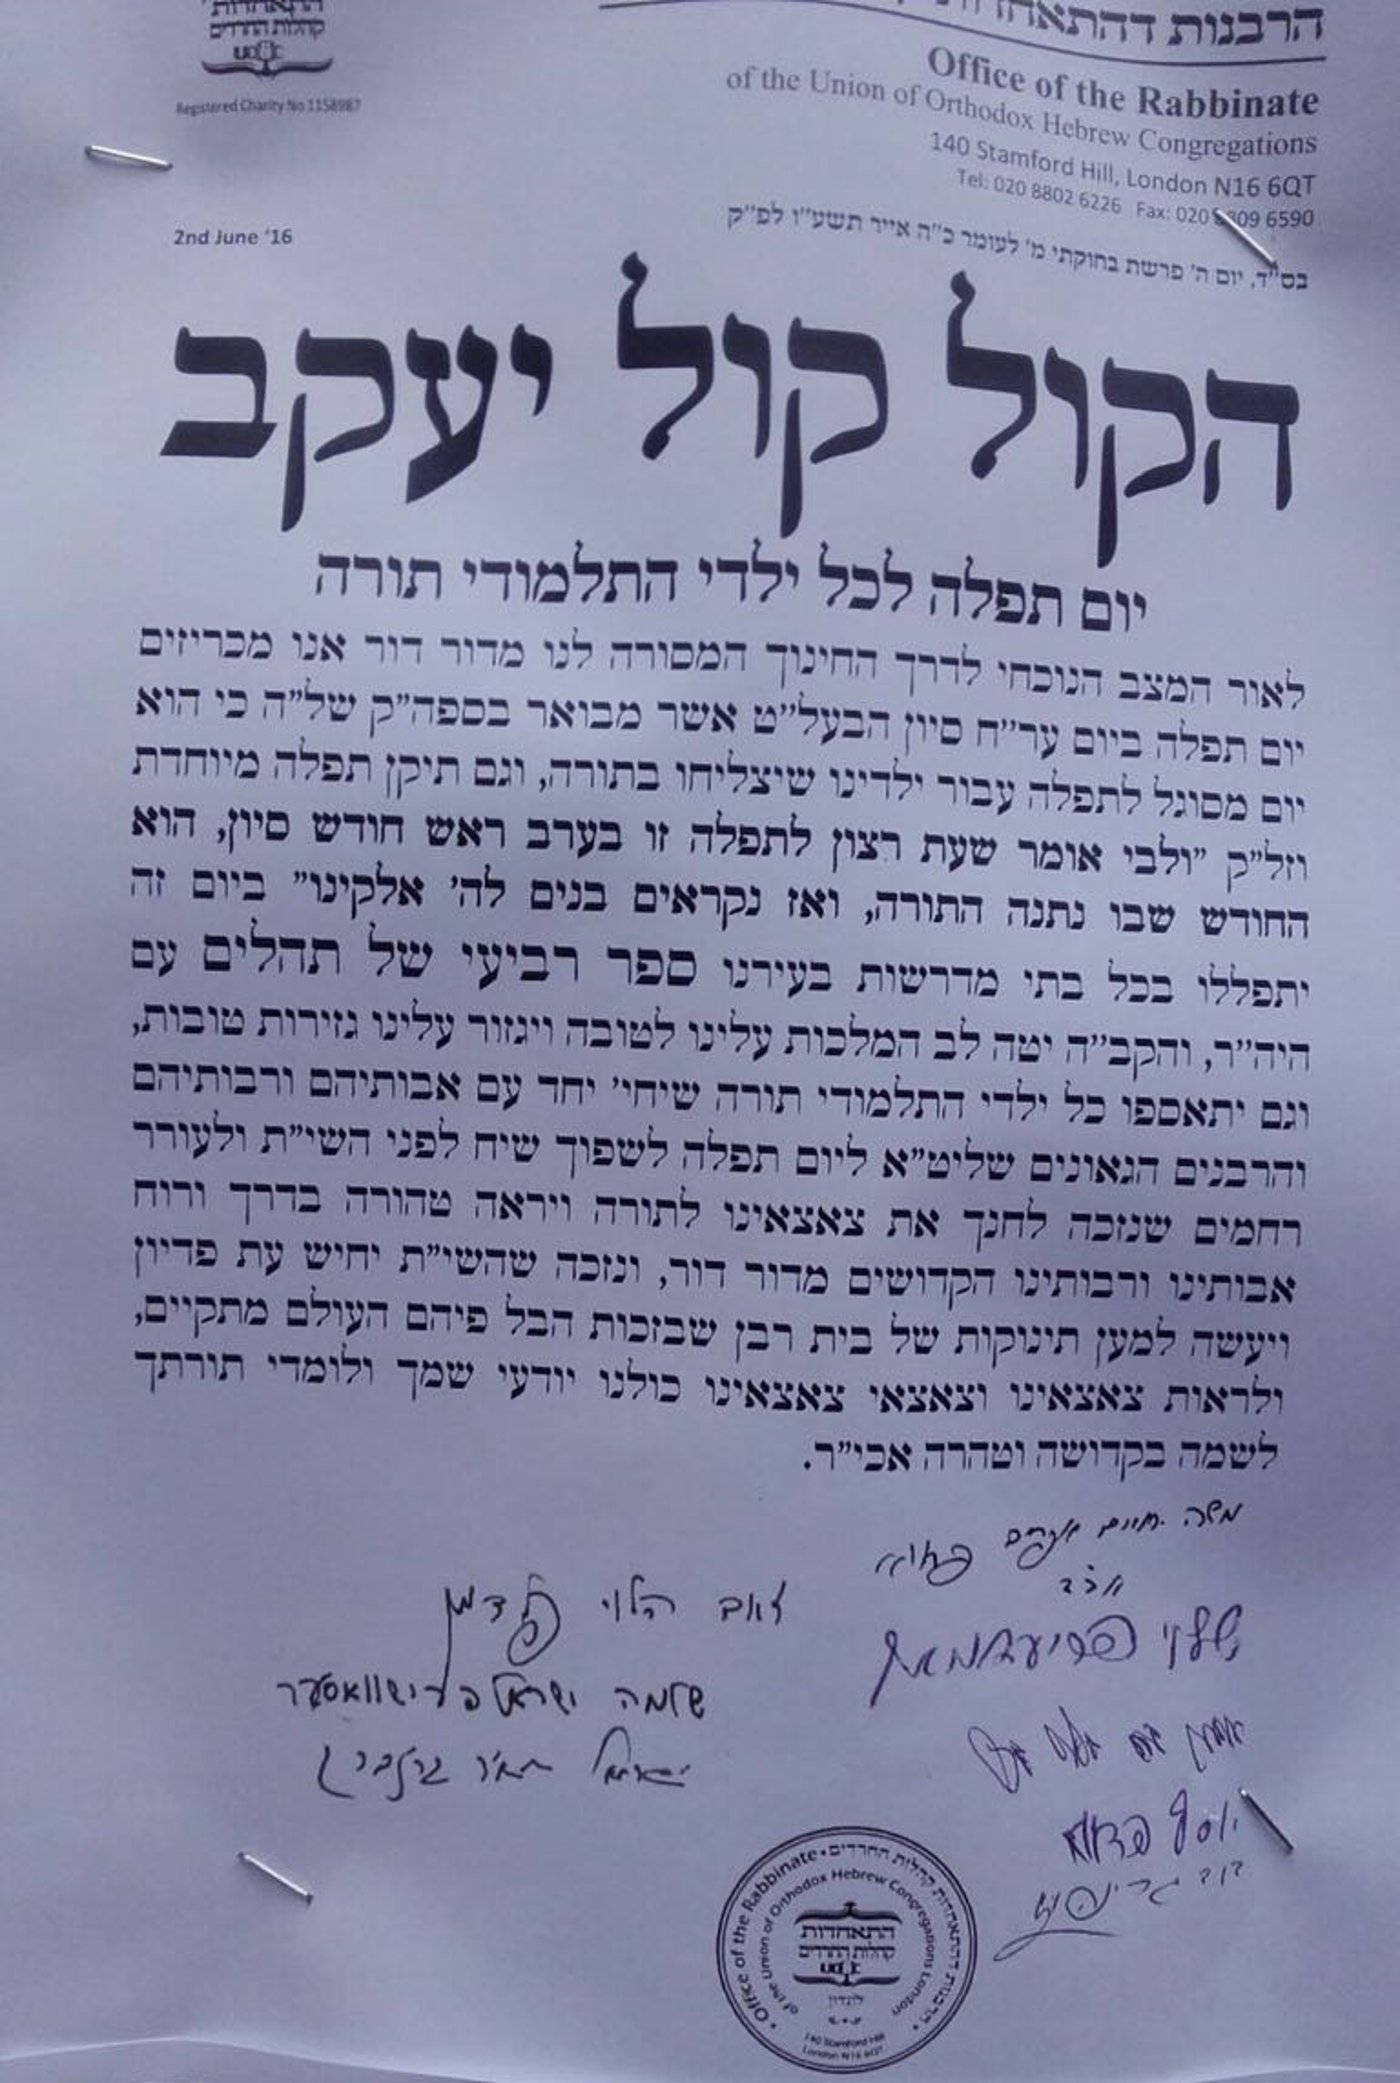 התאחדות
קהלות החרדים
Registered Charity No 1158987
הרבנות דהתאחדות
Office of the Rabbinate
of the Union of Orthodox Hebrew Congregations
140 Stamford Hill, London N16 6QT
Tel: 020 8802 6226 Fax: 020 8809 6590
2nd June '16
בס"ד, יום ה' פרשת בחוקתי מ' לעומר כ"ה אייר תשע"ו לפ"ק
הקול קול יעקב
יום תפלה לכל ילדי התלמודי תורה
לאור המצב הנוכחי לדרך החינוך המסורה לנו מדור דור אנו מכריזים
יום תפלה ביום ער"ח סיון הבעל"ט אשר מבואר בספה"ק של"ה כי הוא
יום מסוגל לתפלה עבור ילדינו שיצליחו בתורה, וגם תיקן תפלה מיוחדת
וזל"ק "ולבי אומר שעת רצון לתפלה זו בערב ראש חודש סיון, הוא
החודש שבו נתנה התורה, ואז נקראים בנים לה' אלקינו" ביום זה
יתפללו בכל בתי מדרשות בעירנו ספר רביעי של תהלים עם
היה"ר, והקב"ה יטה לב המלכות עלינו לטובה ויגזור עלינו גזירות טובות,
וגם יתאספו כל ילדי התלמודי תורה שיחי' יחד עם אבותיהם ורבותיהם
והרבנים הגאונים שליט"א ליום תפלה לשפוך שיח לפני השי"ת ולעורר
רחמים שנזכה לחנך את צאצאינו לתורה ויראה טהורה בדרך ורוח
אבותינו ורבותינו הקדושים מדור דור, ונזכה שהשי"ת יחיש עת פדיון
ויעשה למען תינוקות של בית רבן שבזכות הבל פיהם העולם מתקיים,
ולראות צאצאינו וצאצאי צאצאינו כולנו יודעי שמך ולומדי תורתך
לשמה בקדושה וטהרה אכי"ר.
משה חיים אפרים פאדווא
אב"ד
זאב הלוי פלדמן
פריעדמאן
שלמה ישראל פרישוואסער
ישראל מאיר גרינברג
יוסף פדווא
דוד
Office of the Rabbinate • הרבנות דהתאחדות קהלות החרדים •
of the Union of Orthodox Hebrew Congregations London
התאחדות
קהלות החרדים
לונדון
140 Stamford Hill
London N16 6QT